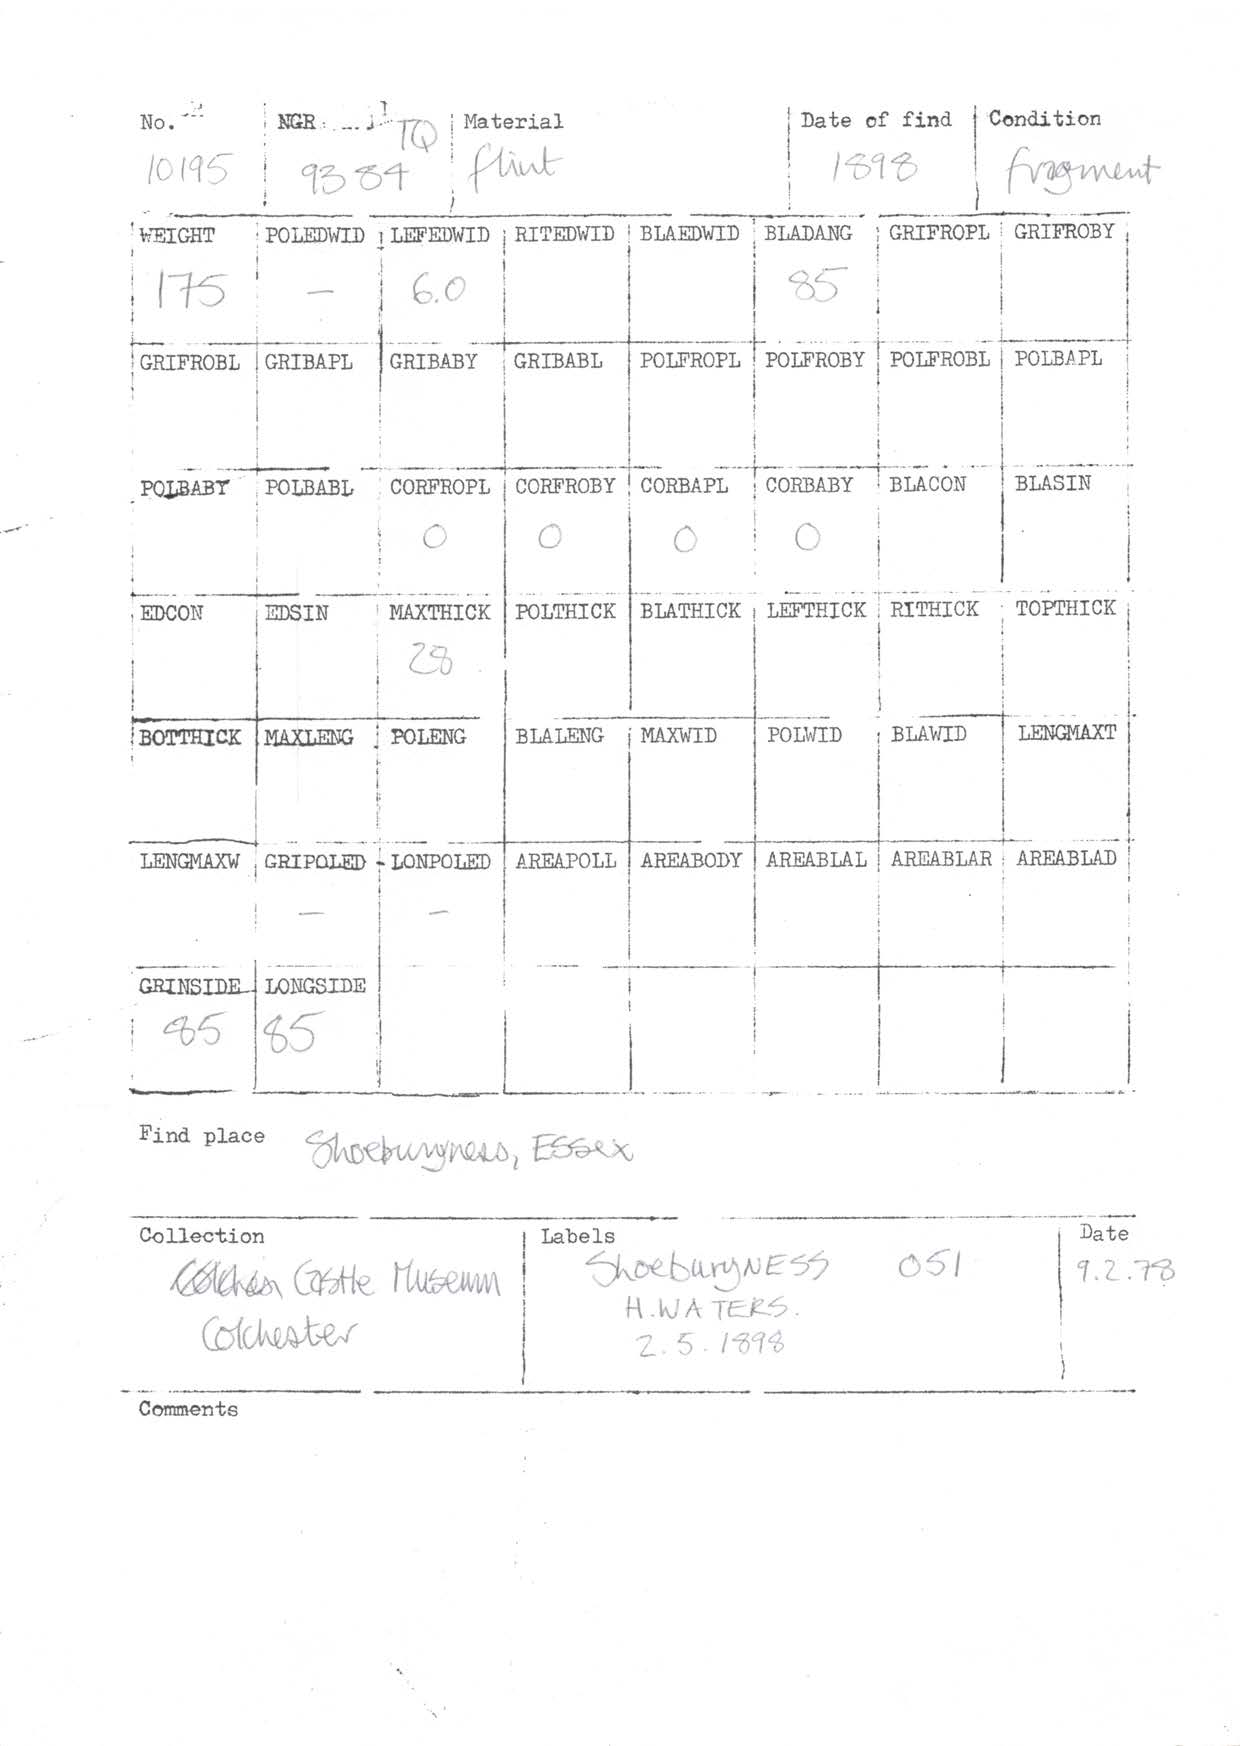 No. NGR TQ Material Date of find Condition
10195 9384 flint 1898 fragment
WEIGHT POLEDWID LEFEDWID RITEDWID BLAEDWID BLADANG GRIFROPL GRIFROBY
175 — 6.0 85
GRIFROBL GRIBAPL GRIBABY GRIBABL POLFROPL POLFROBY POLFROBL POLBAPL
POLBABY POLBABL CORFROPL CORFROBY CORBAPL CORBABY BLACON BLASIN
0 0 0 0
EDCON EDSIN MAXTHICK POLTHICK BLATHICK LEFTHICK RITHICK TOPTHICK
28
BOTTHICK MAXLENG POLENG BLALENG MAXWID POLWID BLAWID LENGMAXT
LENGMAXW GRIPOLED LONPOLED AREAPOLL AREABODY AREABLAL AREABLAR AREABLAD
— —
GRINSIDE LONGSIDE
85 85
Find place Shoeburyness, Essex
Collection Labels Date
Castle Museum ShoeburyNESS 051 9.2.78
Colchester H. WATERS.
2.5.1898
Comments